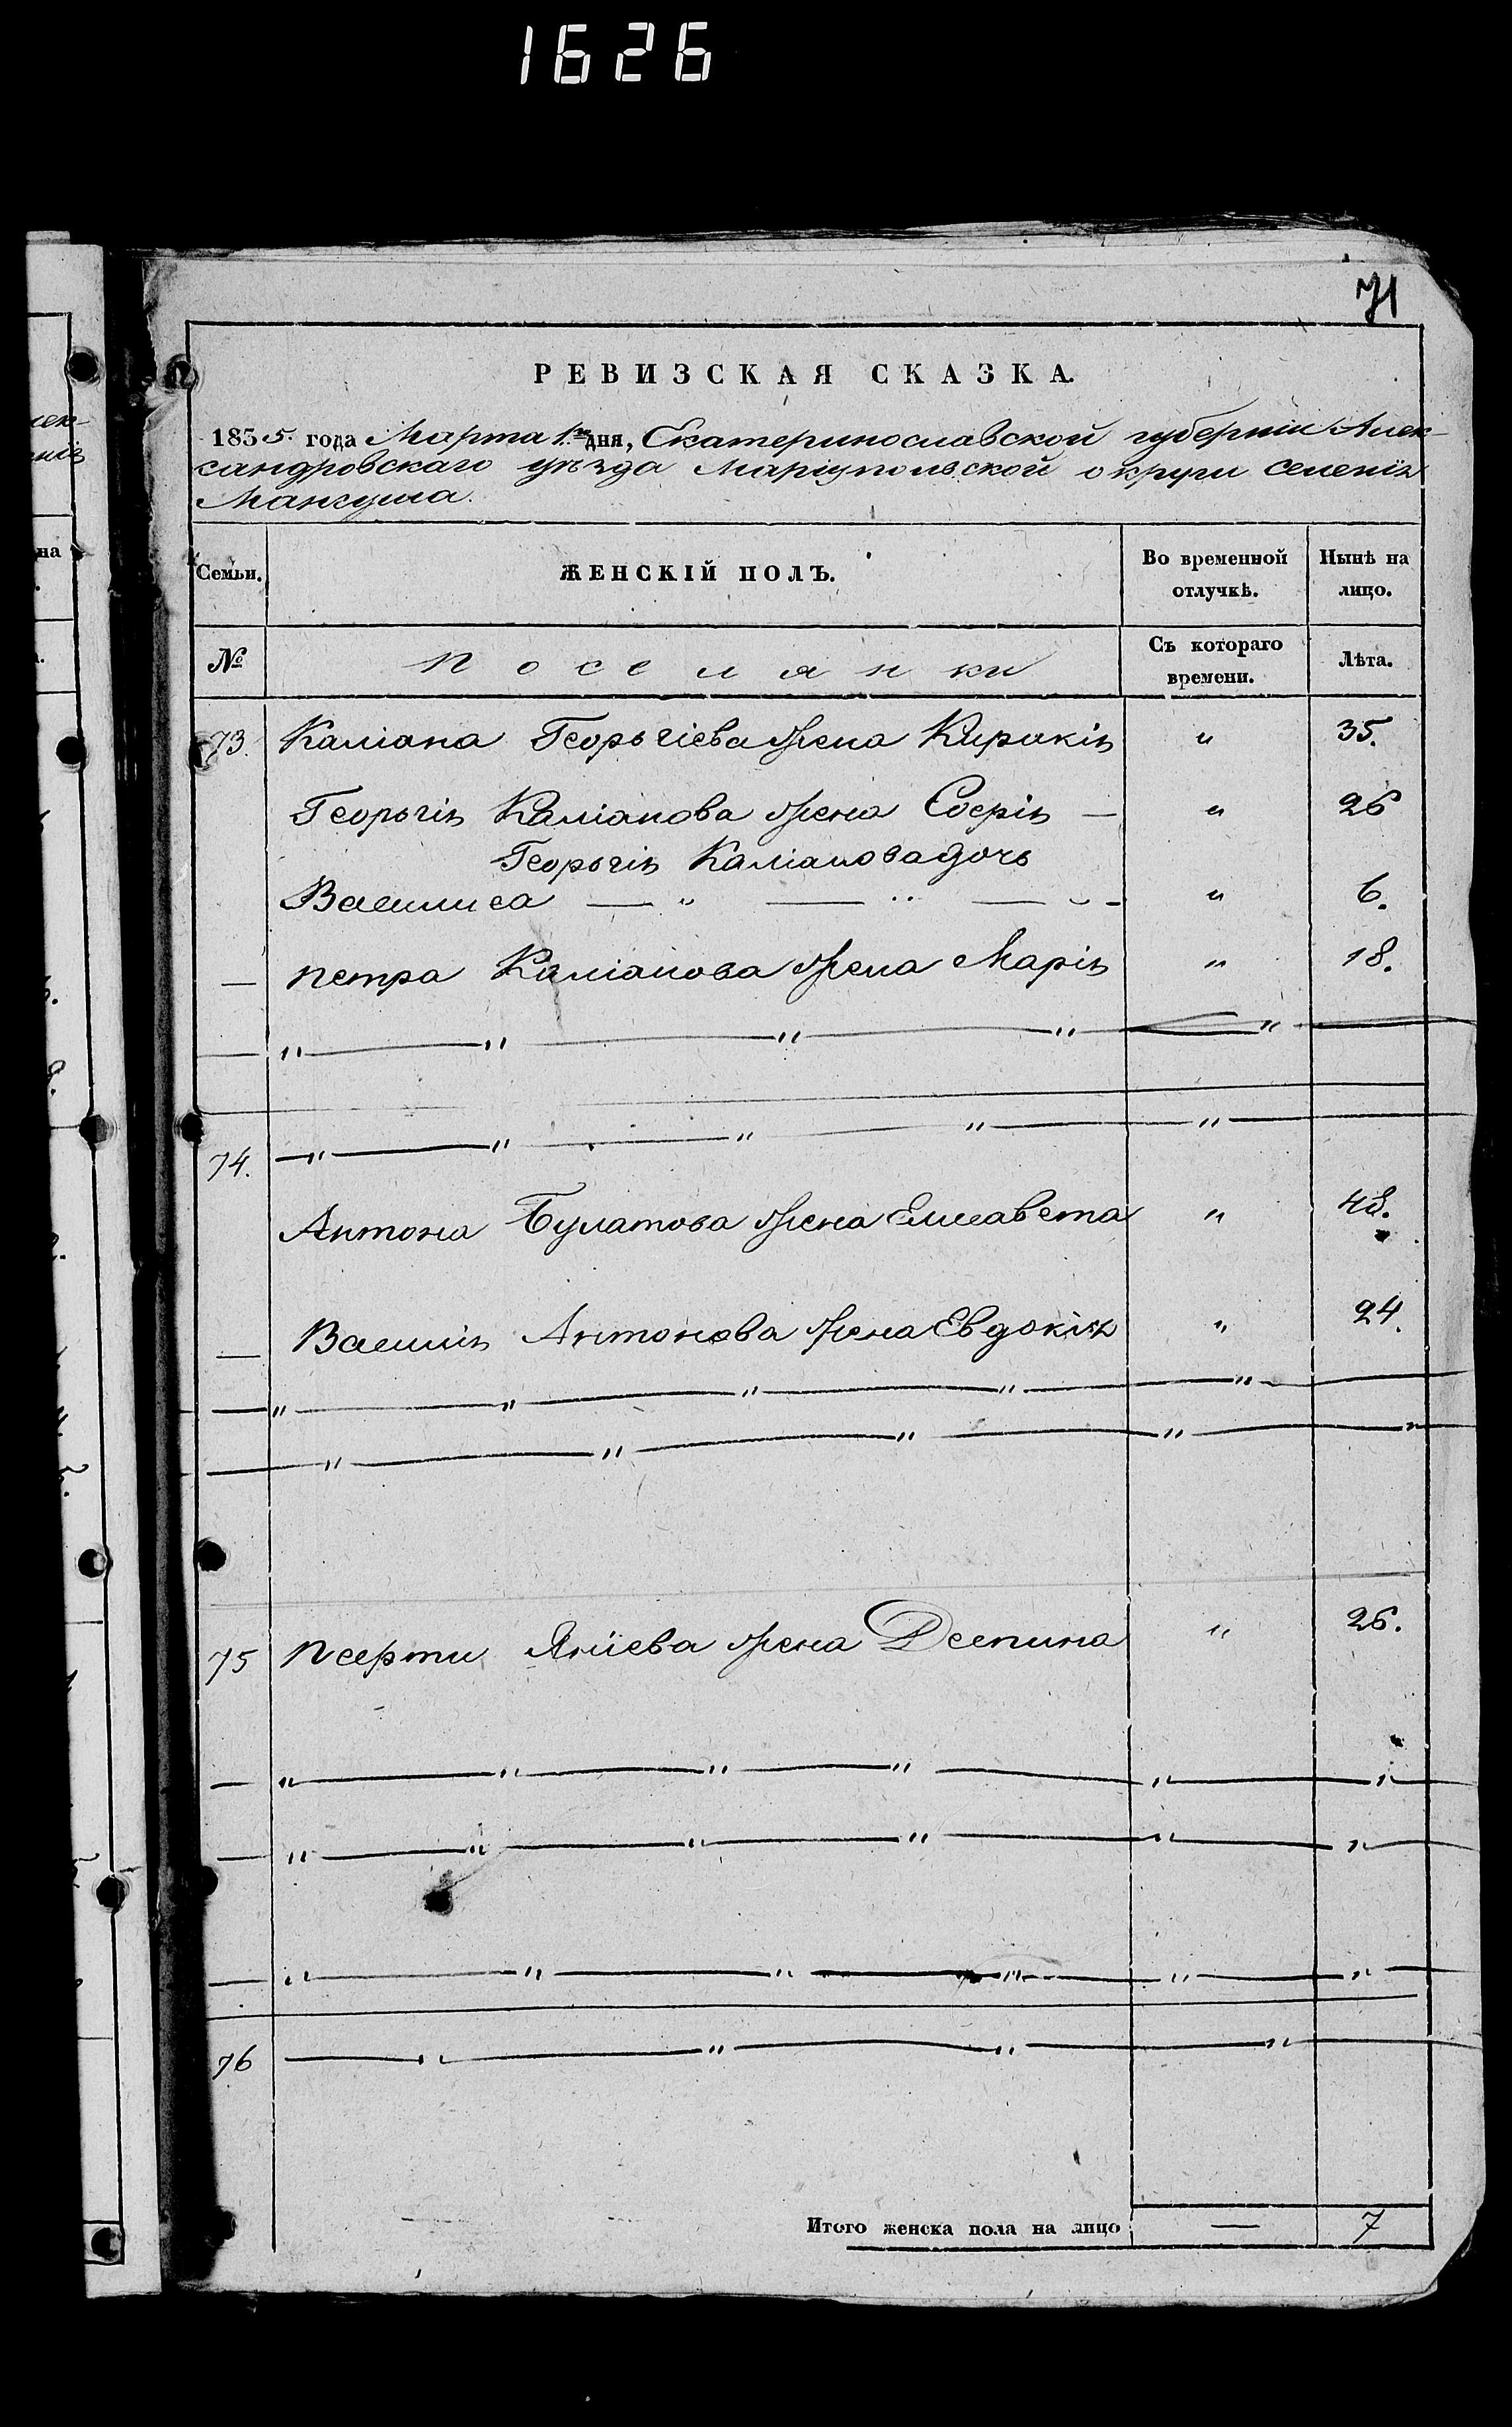 1626
71
РЕВИЗСКАЯ СКАЗКА.
1835. года Марта 1го дня, Екатеринославской губернии Алек-
сандровскаго уѣзда Маріупольской округи селенія
Мангуша.
Семьи. ЖЕНСКІЙ ПОЛЪ. Во временной отлучкѣ. Нынѣ на лицо.
№ Поселянки Съ котораго времени. Лѣта.
73. Каліана Георьгіева жена Киракія " 35.
Георьгія Каліанова жена Софія — " 26
Георьгія Каліанова дочь
Василиса — " — " — " " 6.
— Петра Каліанова жена Марія " 18.
— " — " — " — " — " —
74. — " — " — " — " — " —
Антона Булатова жена Елисавета " 48.
— Василія Антонова жена Евдокія " 24.
— " — " — " — " — " —
— " — " — " — " — "
75 Псерти Яніева жена Деспина " 26.
— " — " — " — " — " — "
— " — " — " — " — " — "
— " — " — " — " — " — "
76 — " — " — " — " —
Итого женска пола на лицо — 7